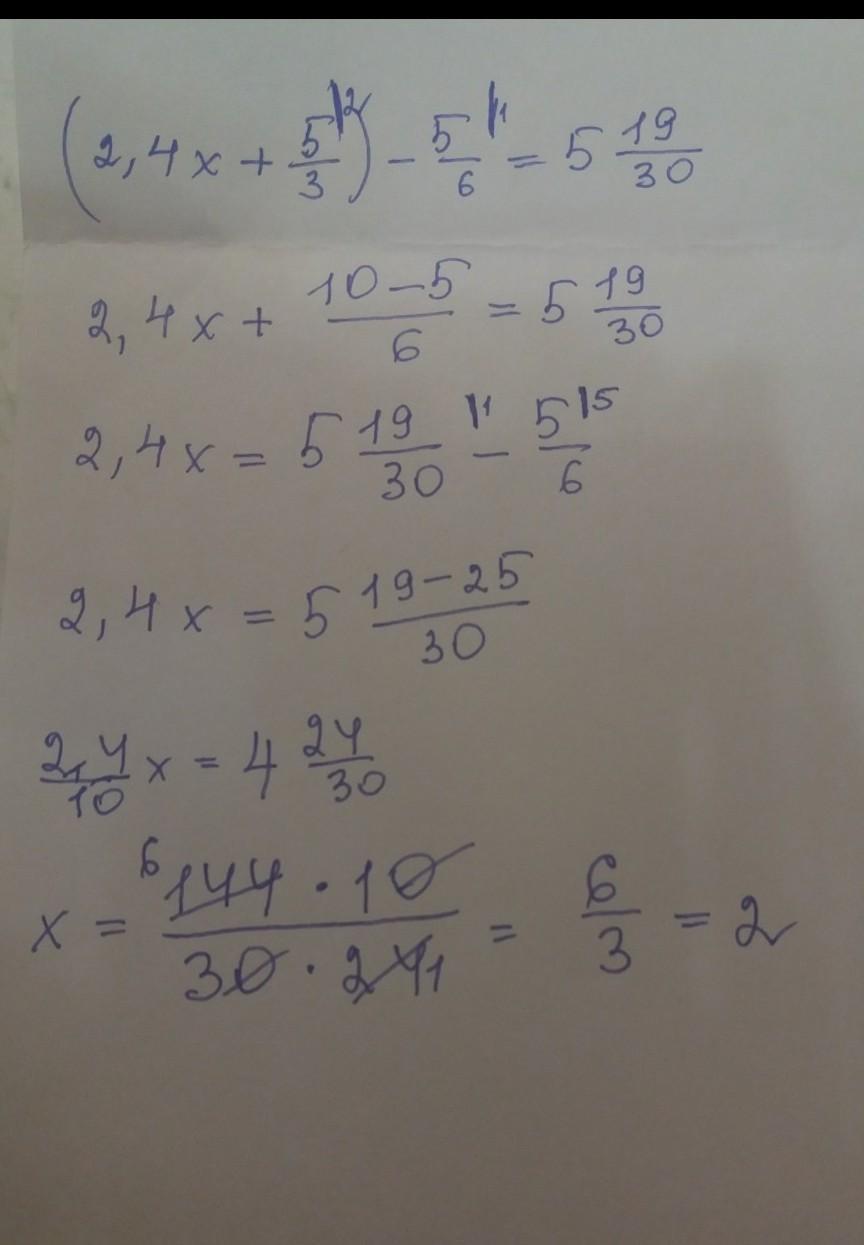 (2,4x + 5/3 |2) - 5/6 |1 = 5 19/30
2,4x + (10-5)/6 = 5 19/30
2,4x = 5 19/30 |1 - 5/6 |5
2,4x = 5 (19-25)/30
2,4/10 x = 4 24/30
x = 6 144 · 10 / 30 · 24 1 = 6/3 = 2